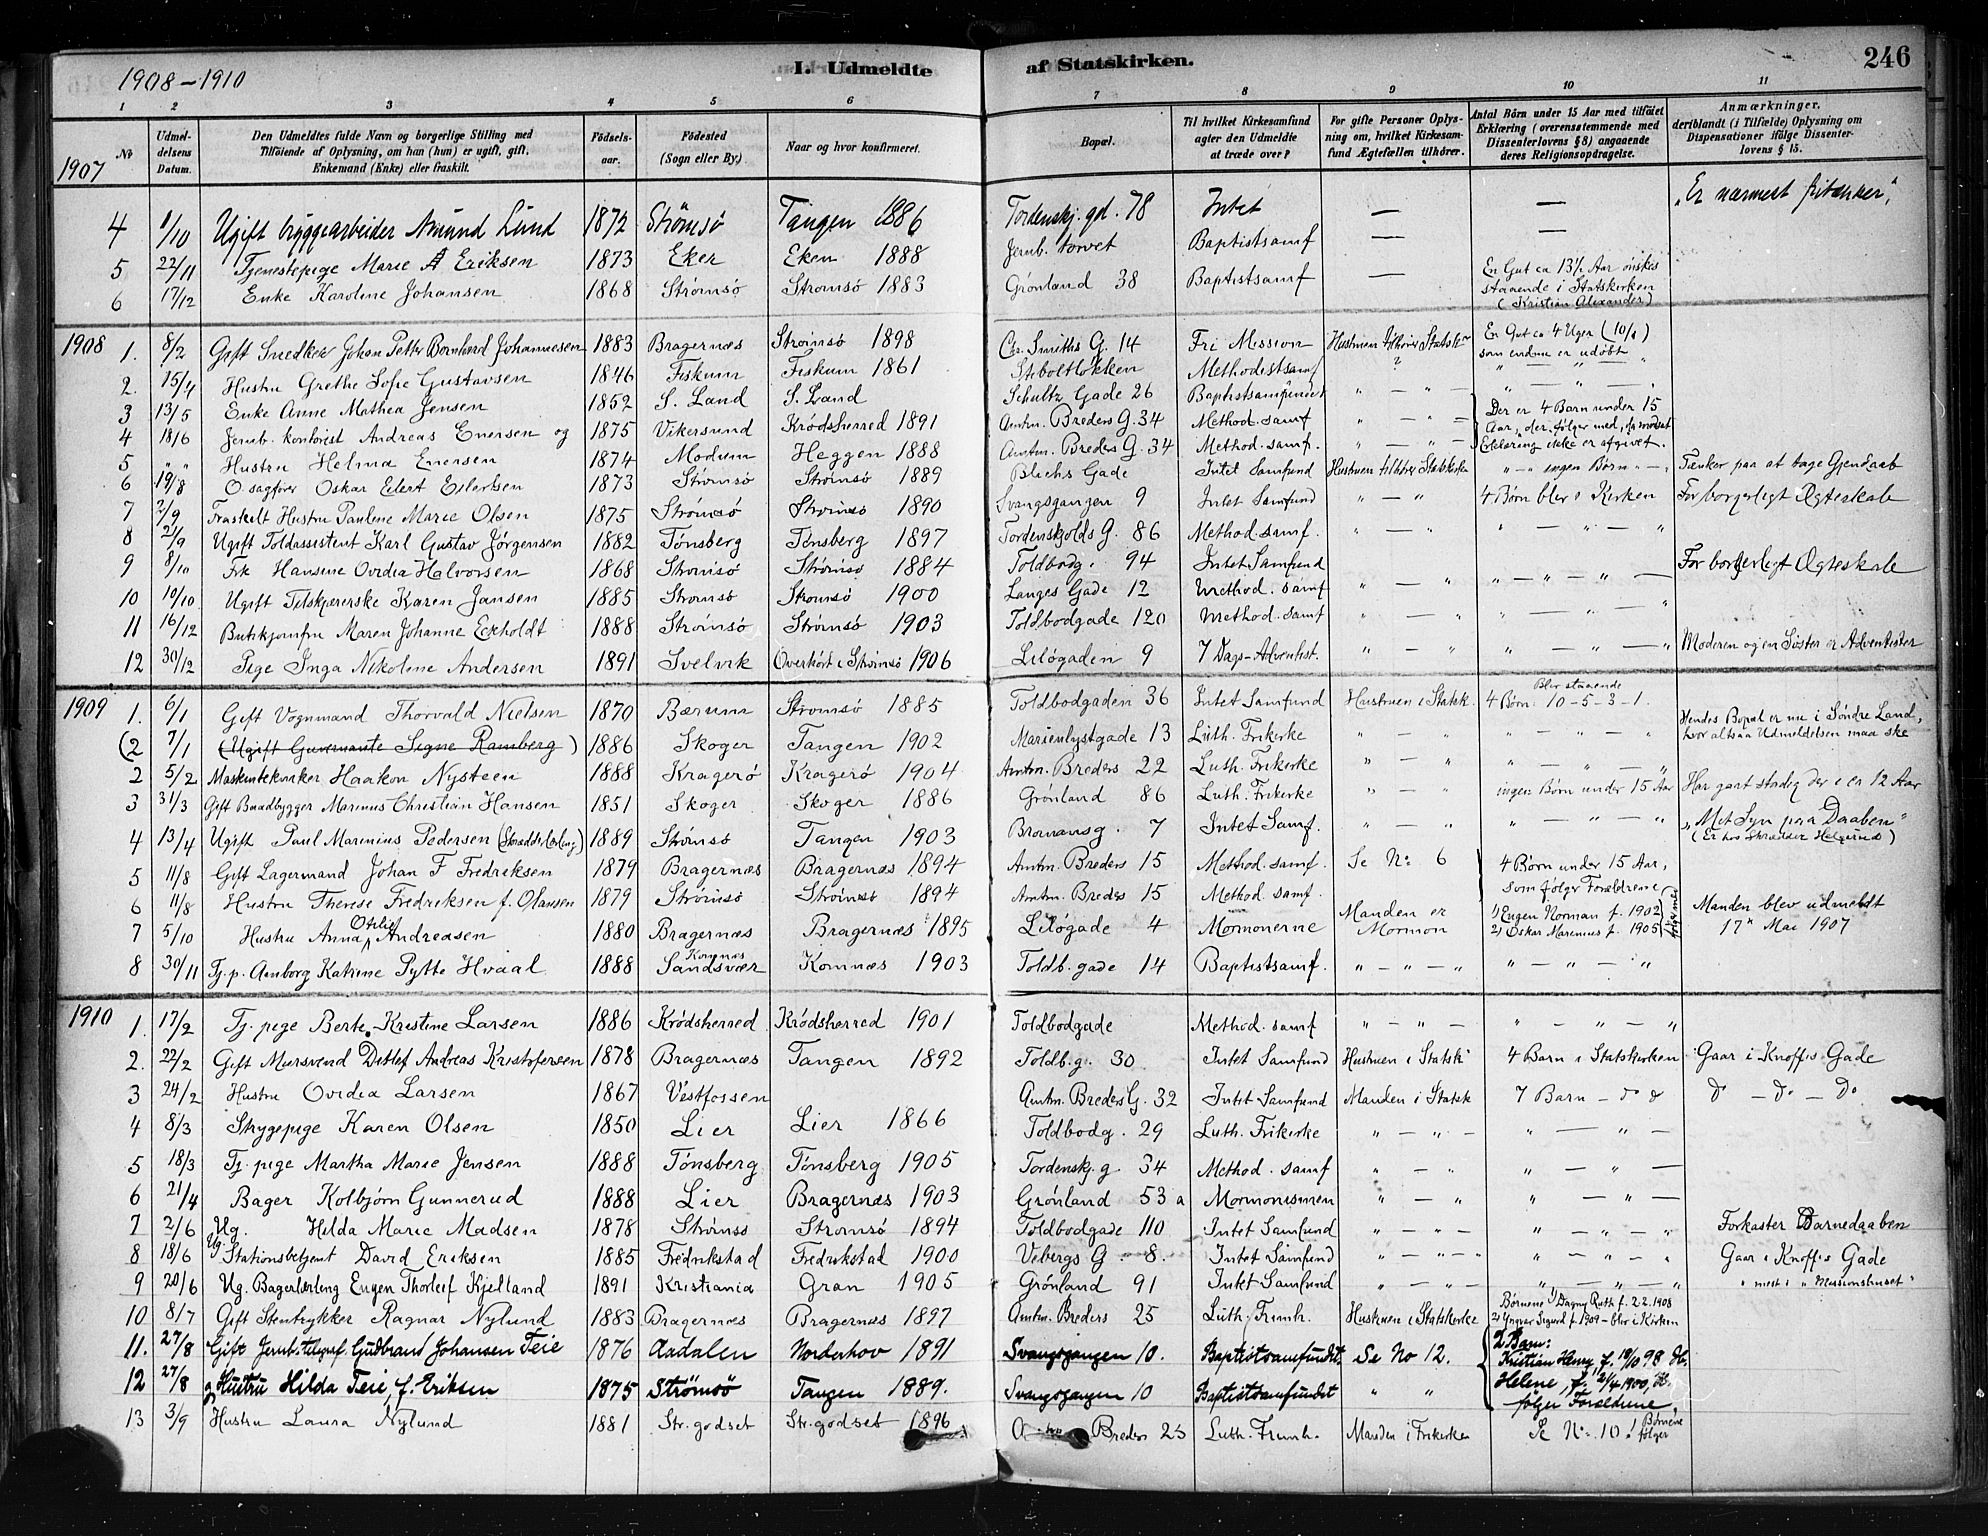 1908-1910
I. Udmeldte af Statskirken.
246
1 2 3 4 5 6 7 8 9 10 11
No
Udmeldelsens Datum.
Den Udmeldtes fulde Navn og borgerlige Stilling med
Tilföiende af Oplysning, om han (hun) er ugift, gift,
Enkemand (Enke) eller fraskilt.
Födselsaar.
Födested
(Sogn eller By.)
Naar og hvor konfirmeret.
Bopæl.
Til hvilket Kirkesamfund
agter den Udmeldte
at træde over?
For gifte Personer Oplysning
om, hvilket Kirkesamfund
Ægtefællen tilhörer.
Antal Börn under 15 Aar med tilföiet
Erklæring (overensstemmende med
Dissenterlovens § 8) angaaende
deres Religionsopdragelse.
Anmærkninger,
deriblandt (i Tilfælde) Oplysning om
Dispensationer ifölge Dissenterlovens
§ 15.
1907
4 1/10 Ugift bryggearbeider Amund Lund 1872 Strömsö Tangen 1886 Tordenskj. gd. 78 Intet — — "Er nærmest fritænker,"
5 22/11 Tjenestepige Marie A Eriksen 1873 Eker Eker 1888 Jernb. torvet Baptistsamf — —
6 17/12 Enke Karoline Johansen 1868 Strømsø Strømsø 1883 Grønland 38 Baptistsamf — En Gut ca 13½ Aar ønskes
staaende i Statskirken
(Kristian Alexander)
1908
1. 8/2 Gift Snedker Johan Petter Bernhard Johannesen 1883 Bragernæs Strømsø 1898 Chr. Smiths G. 14 Fri Mission Hustruen tilhører Statsk. En Gut ca 4 Uger (10/1)
som endnu er udøbt
2. 15/4 Hustru Grethe Sofie Gustavsen 1846 Fiskum Fiskum 1861 Stiboltløkken Methodistsamf ? " — " — "
3 13/5 Enke Anne Mathea Jensen 1852 S. Land S. Land Schultz Gade 26 Baptistsamfundet " — " — " " — " — "
4 18/6 Jernb. kontorist Andreas Enersen og 1875 Vikersund Krødsherred 1891 Amtm. Breders G. 34 Method. samf " — " — Der er 4 Barn under 15
Aar, der følger med, da modsat
5 " " Hustru Helma Enersen 1874 Modum Heggen 1888 Amtm. Breders G. 34 Method. samf. " — " — Erklæring ikke er afgivet.
6 19/8 O.sagfører Oskar Eilert Eilertsen 1873 Strømsø Strømsø 1889 Blichs Gade Intet Samfund Hustruen tilhører Statskirken " — " ingen Børn " — Tænker paa at tage Gjendaab
7 2/9 Fraskilt Hustru Pauline Marie Olsen 1875 Strømsø Strømsø 1890 Svangsgangen 9 Intet Samfund " — " 4 Børn blir i Kirken For borgerligt Ægteskab
8 21/9 Ugift Toldassistent Karl Gustav Jørgensen 1882 Tønsberg Tønsberg 1897 Tordenskjolds G. 86 Method. samf. " — " " — " — "
9 8/10 Frk Hansine Ovidia Halvorsen 1868 Strømsø Strømsø 1884 Toldbodg. 94 Intet Samfund For borgerligt Ægteskab
10 10/10 Ugift Tilskjærerske Karen Jansen 1885 Strømsø Strømsø 1900 Langes Gade 12 Method. samf " — " " — " — " —
11 16/12 Butikjomfru Maren Johanne Eckholdt 1888 Strømsø Strømsø 1903 Toldbodgade 120 Method. samf " — " " — " — "
12 30/12 Pige Inga Nikoline Andersen 1891 Svelvik Overhört i Strømsø 1906 Liløgaden 9 7 Dags-Adventist. " — " " — " — " Moderen og en Søster er Adventister
1909
1. 6/1 Gift Vognmand Thorvald Nielsen 1870 Bærum Strømsø 1885 Toldbodgaden 36 Intet Samfund Hustruen i Statsk. Blir staaende
4 Børn 10-5-3-1.
(2 7/1 (Ugift Guvernante Signe Ramberg) 1886 Skoger Tangen 1902 Marienlystgade 13 Luth. Frikirke " — " " — " — " Hendes Bopæl er nu i Søndre Land,
hvor altsaa Udmeldelsen maa ske
2 5/2 Maskintekniker Haakon Nysteen 1888 Kragerö Kragerö 1904 Amtm. Breders 22 Luth. Frikirke " — " " — " — "
3 31/3 Gift Baadbygger Marinius Christian Hansen 1851 Skoger Skoger 1886 Grønland 86 Luth. Frikirke " — " ingen Børn under 15 Aar Har gaat stadig der i en 12 Aar
4 13/4 Ugift Paul Marinius Pedersen (Skrædderlærling) 1889 Strømsø Tangen 1903 Bromansg. 7 Intet Samf. " — " " — " — " "Met Syn paa Daaben"
(Er hos Skrædder Helgerud)
5 11/8 Gift Lagermand Johan F Fredriksen 1879 Bragernæs Bragernæs 1894 Amtm. Breders 15 Method. samf. Se No 6 4 Børn under 15 Aar,
6 11/8 Hustru Therese Fredriksen f. Olausen 1879 Strømsø Strømsø 1894 Amtm. Breders 15 Method. samf. som følger Forældrene
7 5/10 Hustru Anna Otilie Andreasen 1880 Bragernæs Bragernæs 1895 Liløgade 4 Mormonerne Manden er
Mormon 1) Eugen Norman f. 1902
2) Oskar Marinius f. 1905 Manden blev udmeldt
17de Mai 1907
8 30/11 Tj.p. Aaborg Katrine Pytte Hvaal 1888 Komnæs
Sandsvær Komnæs 1903 Toldb. gade 14 Baptistsamf. " — " — " " — " — "
1910
1. 17/2 Tj. pige Berte Kristine Larsen 1886 Krødsherred Krødsherred 1901 Toldbodgade Method. samf " — " — " — " — "
2. 22/2 Gift Mursvend Detlef Andreas Kristofersen 1878 Bragernæs Tangen 1892 Toldb.g. 30 Intet Samfund Hustruen i Statsk 4 Barn i Statskirken Gaar i Knoffs Gade
3 24/2 Hustru Ovidia Larsen 1867 Vestfossen Amtm. Breders G. 32 Intet Samfund Manden i Statsk 7 Barn — do do do — do — do
4 8/3 Strygepige Karen Olsen 1850 Lier Lier 1866 Toldbodg. 29 Luth. Frikirke " — " — " — " —
5 18/3 Tj. pige Martha Marie Jensen 1888 Tønsberg Tønsberg 1905 Tordenskj. g. 34 Method. samf " — " " — " —
6 21/4 Bager Kolbjørn Gunnerud 1888 Lier Bragernæs 1903 Grønland 53 a Mormonismen " — " " — " —
7 2/6 Ug. Hilda Marie Madsen 1878 Strømsø Strømsø 1894 Toldbodgade 110 Intet Samfund " — " — " " — " — " Forkaster Barnedaaben
8 18/6 Ug. Stationsbetjent David Eriksen 1885 Fredrikstad Fredrikstad 1900 Vebergs G. 8. Intet Samfund " — " — " " — " — " Gaar i Knoffs Gade
9 20/6 Ug. Bagerlærling Eugen Thorleif Kjelland 1891 Kristiania Gran 1905 Grønland 91 Intet Samfund " — " — " " — " — " " mest i "Missionshuset"
10 8/7 Gift Stentrykker Ragnar Nylund 1883 Bragernæs Bragernæs 1897 Amtm. Breders 25 Luth. Frimh. Hustruen i Statskirke Børnene 1) Dagny Ruth f. 22.1908
2) Yngvar Sigurd f. 1909 - blir i Kirken
11. 27/8 Gift Jernb.-telegraf. Gudbrand Johansen Teie 1876 Aadalen Norderhov 1891 Svangsgangen 10. Baptistsamfundet. Se No 12. 2 Barn:
Kristian Henry, f. 19/10 98 &.
12 27/8 og Hustru Hilda Teie, f. Eriksen 1875 Strömsö Tangen 1889. Svangsgangen 10 Baptistsamfundet " " Helene, f. 21/4 1900,
følger Forældrene.
13 3/9 Hustru Laura Nylund 1881 Str. godset Str. godset 1896 Breders 25 Luth. Frimh. Manden i Frikirken Se No 10! Børnene
følger